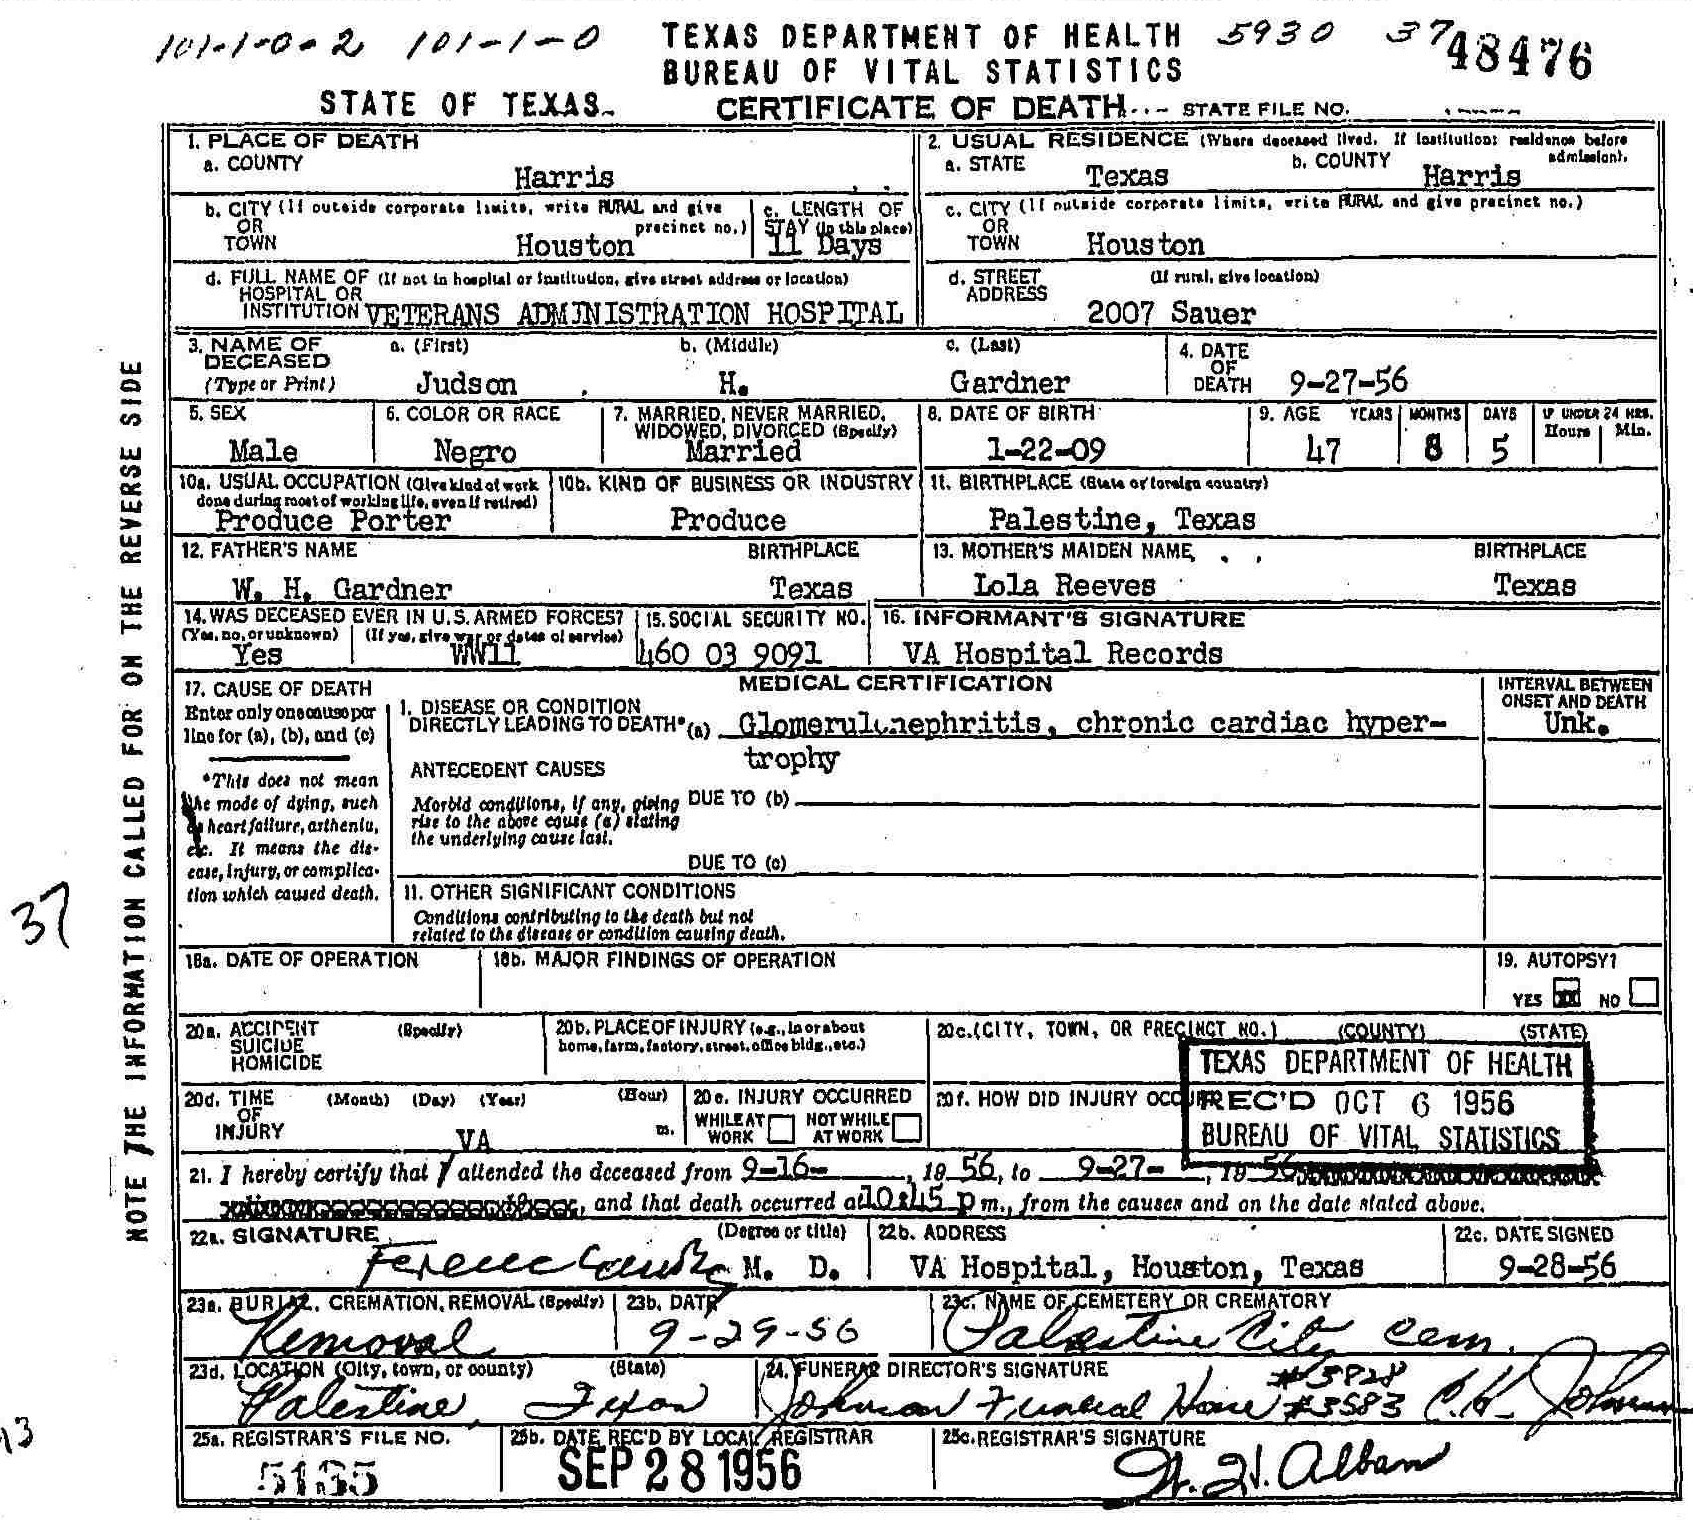 101-1-0-2 101-1-0 TEXAS DEPARTMENT OF HEALTH 5930 37 48476
BUREAU OF VITAL STATISTICS
STATE OF TEXAS CERTIFICATE OF DEATH STATE FILE NO.
NOTE THE INFORMATION CALLED FOR ON THE REVERSE SIDE
1. PLACE OF DEATH
a. COUNTY
Harris
2. USUAL RESIDENCE (Where deceased lived. If institution: residence before admission).
a. STATE Texas b. COUNTY Harris
b. CITY (If outside corporate limits, write RURAL and give precinct no.)
OR
TOWN Houston
c. LENGTH OF
STAY (in this place)
11 Days
c. CITY (If outside corporate limits, write RURAL and give precinct no.)
OR
TOWN Houston
d. FULL NAME OF (If not in hospital or institution, give street address or location)
HOSPITAL OR
INSTITUTION VETERANS ADMINISTRATION HOSPITAL
d. STREET (If rural, give location)
ADDRESS
2007 Sauer
3. NAME OF a. (First) b. (Middle) c. (Last)
DECEASED
(Type or Print) Judson H. Gardner
4. DATE
OF
DEATH 9-27-56
5. SEX
Male
6. COLOR OR RACE
Negro
7. MARRIED, NEVER MARRIED,
WIDOWED, DIVORCED (Specify)
Married
8. DATE OF BIRTH
1-22-09
9. AGE YEARS MONTHS DAYS IF UNDER 24 HRS.
Hours Min.
47 8 5
10a. USUAL OCCUPATION (Give kind of work
done during most of working life, even if retired)
Produce Porter
10b. KIND OF BUSINESS OR INDUSTRY
Produce
11. BIRTHPLACE (State or foreign country)
Palestine, Texas
12. FATHER'S NAME BIRTHPLACE
W. H. Gardner Texas
13. MOTHER'S MAIDEN NAME BIRTHPLACE
Lola Reeves Texas
14. WAS DECEASED EVER IN U.S. ARMED FORCES?
(Yes, no, or unknown) (If yes, give war or dates of service)
Yes WW11
15. SOCIAL SECURITY NO.
460 03 9091
16. INFORMANT'S SIGNATURE
VA Hospital Records
17. CAUSE OF DEATH
Enter only one cause per
line for (a), (b), and (c)
*This does not mean
the mode of dying, such
as heart failure, asthenia,
etc. It means the dis-
ease, injury, or complica-
tion which caused death.
MEDICAL CERTIFICATION
INTERVAL BETWEEN
ONSET AND DEATH
Unk.
I. DISEASE OR CONDITION
DIRECTLY LEADING TO DEATH* (a) Glomerulonephritis, chronic cardiac hyper-
trophy
ANTECEDENT CAUSES
Morbid conditions, if any, giving DUE TO (b)
rise to the above cause (a) stating
the underlying cause last.
DUE TO (c)
11. OTHER SIGNIFICANT CONDITIONS
Conditions contributing to the death but not
related to the disease or condition causing death.
37
18a. DATE OF OPERATION
18b. MAJOR FINDINGS OF OPERATION
19. AUTOPSY?
YES NO
20a. ACCIDENT (Specify)
SUICIDE
HOMICIDE
20b. PLACE OF INJURY (e.g., in or about
home, farm, factory, street, office bldg., etc.)
20c. (CITY, TOWN, OR PRECINCT NO.) (COUNTY) (STATE)
TEXAS DEPARTMENT OF HEALTH
REC'D OCT 6 1956
BUREAU OF VITAL STATISTICS
20d. TIME (Month) (Day) (Year) (Hour)
OF
INJURY m.
20e. INJURY OCCURRED
WHILE AT WORK NOT WHILE AT WORK
20f. HOW DID INJURY OCCUR?
VA
21. I hereby certify that I attended the deceased from 9-16-, 1956, to 9-27-, 1956
, and that death occurred at 10:45 p m., from the causes and on the date stated above.
22a. SIGNATURE (Degree or title)
Ferenc M. D.
22b. ADDRESS
VA Hospital, Houston, Texas
22c. DATE SIGNED
9-28-56
23a. BURIAL, CREMATION, REMOVAL (Specify)
Removal
23b. DATE
9-29-56
23c. NAME OF CEMETERY OR CREMATORY
Palestine City Cem.
23d. LOCATION (City, town, or county) (State)
Palestine, Texas
24. FUNERAL DIRECTOR'S SIGNATURE
#3828
Johnson Funeral Home #3583 C. H. Johnson
25a. REGISTRAR'S FILE NO.
5135
25b. DATE REC'D BY LOCAL REGISTRAR
SEP 28 1956
25c. REGISTRAR'S SIGNATURE
W. H. Alban